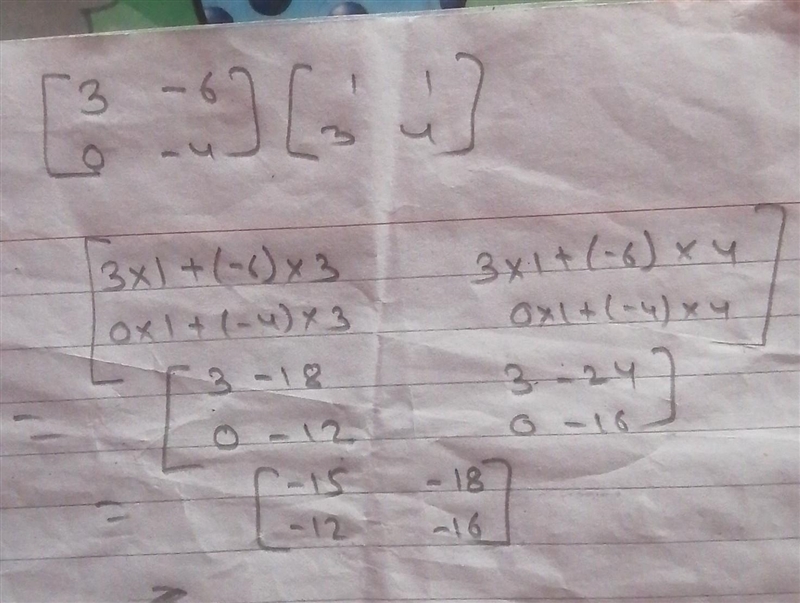 [ 3 -6 ] [ 1 1 ]
[ 0 -4 ] [ 3 4 ]
[ 3×1+(-6)×3 3×1+(-6)×4 ]
[ 0×1+(-4)×3 0×1+(-4)×4 ]
= [ 3-18 3-24 ]
[ 0-12 0-16 ]
= [ -15 -18 ]
[ -12 -16 ]